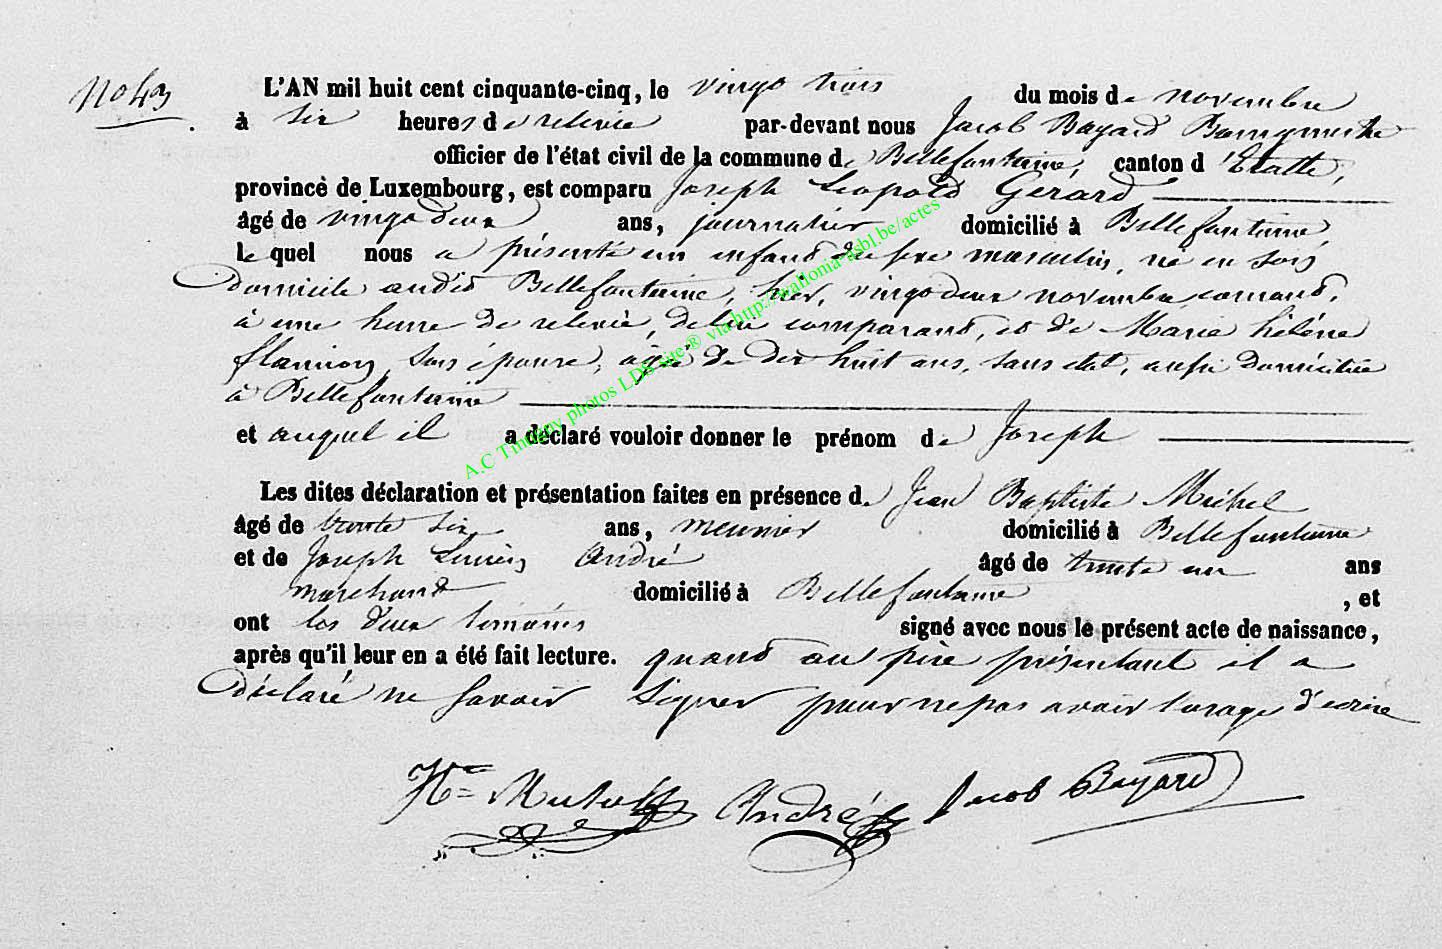 No 43
L'AN mil huit cent cinquante-cinq, le vingt trois du mois de novembre
à six heures de relevée par-devant nous Jacob Bayard Bourgmestre
officier de l'état civil de la commune de Bellefontaine, canton d'Etalle,
province de Luxembourg, est comparu Joseph Léopold Gerard
âgé de vingt deux ans, journalier domicilié à Bellefontaine,
lequel nous a présenté un enfant du sexe masculin, né en son
domicile audit Bellefontaine, hier, vingt deux novembre courant,
à une heure de relevée, de lui comparant, et de Marie héléne
flamion, son épouse, âgée de dix huit ans, sans état, aussi domiciliée
à Bellefontaine
et auquel il a déclaré vouloir donner le prénom de Joseph
Les dites déclaration et présentation faites en présence de Jean Baptiste Michel
âgé de trente six ans, meunier domicilié à Bellefontaine
et de Joseph Lucien André âgé de trente un ans
marchand domicilié à Bellefontaine, et
ont les deux témoins signé avec nous le présent acte de naissance,
après qu'il leur en a été fait lecture. quant au père présentant il a
déclaré ne savoir signer pour ne pas avoir l'usage d'écrire
André Jacob Bayard
A.C Tintigny photos LDS site ® via http://wallonia-asbl.be/actes